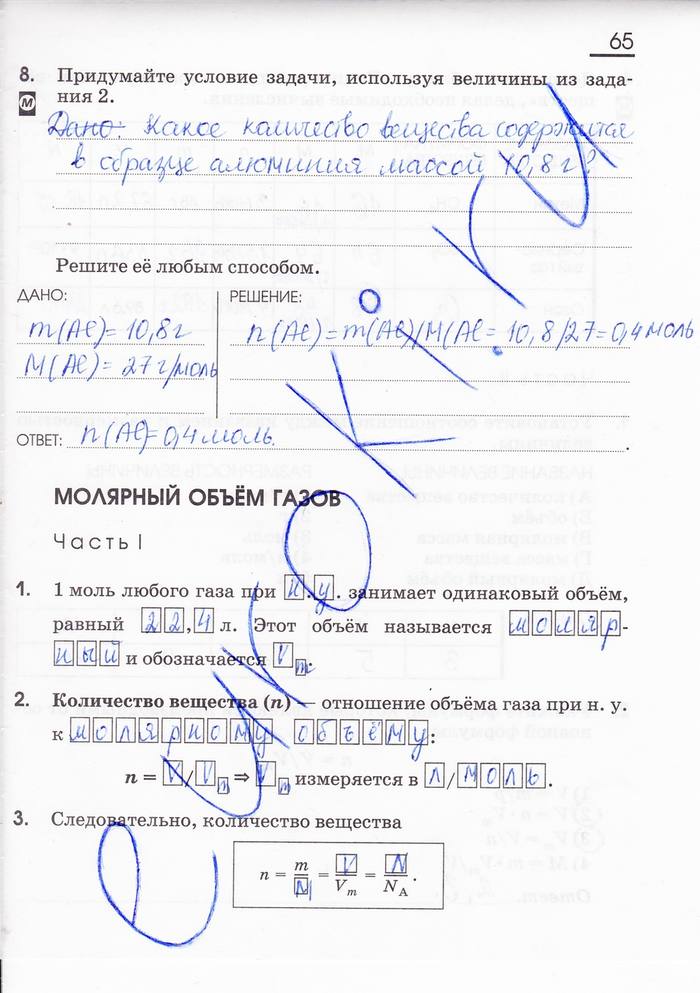 65
8. Придумайте условие задачи, используя величины из зада-
М ния 2.
Дано: Какое количество вещества содержится
в образце алюминия массой 10,8 г?
Решите её любым способом.
ДАНО: РЕШЕНИЕ:
m(Al) = 10,8 г n(Al) = m(Al)/M(Al = 10,8/27 = 0,4 моль
M(Al) = 27 г/моль
ОТВЕТ: n(Al) = 0,4 моль.
МОЛЯРНЫЙ ОБЪЁМ ГАЗОВ
Часть I
1. 1 моль любого газа при н.у. занимает одинаковый объём,
равный 22,4 л. Этот объём называется моляр-
ный и обозначается Vm.
2. Количество вещества (n) — отношение объёма газа при н. у.
к молярному объёму:
n = V/Vm ⇒ Vm измеряется в л/моль.
3. Следовательно, количество вещества
n = m/M = V/Vm = N/NA.
e-uroki.ru